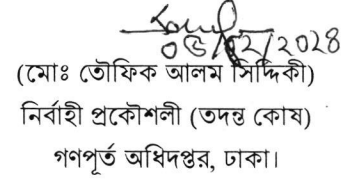 ০৫/০২/২০২৪
(মোঃ তৌফিক আলম সিদ্দিকী)
নির্বাহী প্রকৌশলী (তদন্ত কোষ)
গণপূর্ত অধিদপ্তর, ঢাকা।